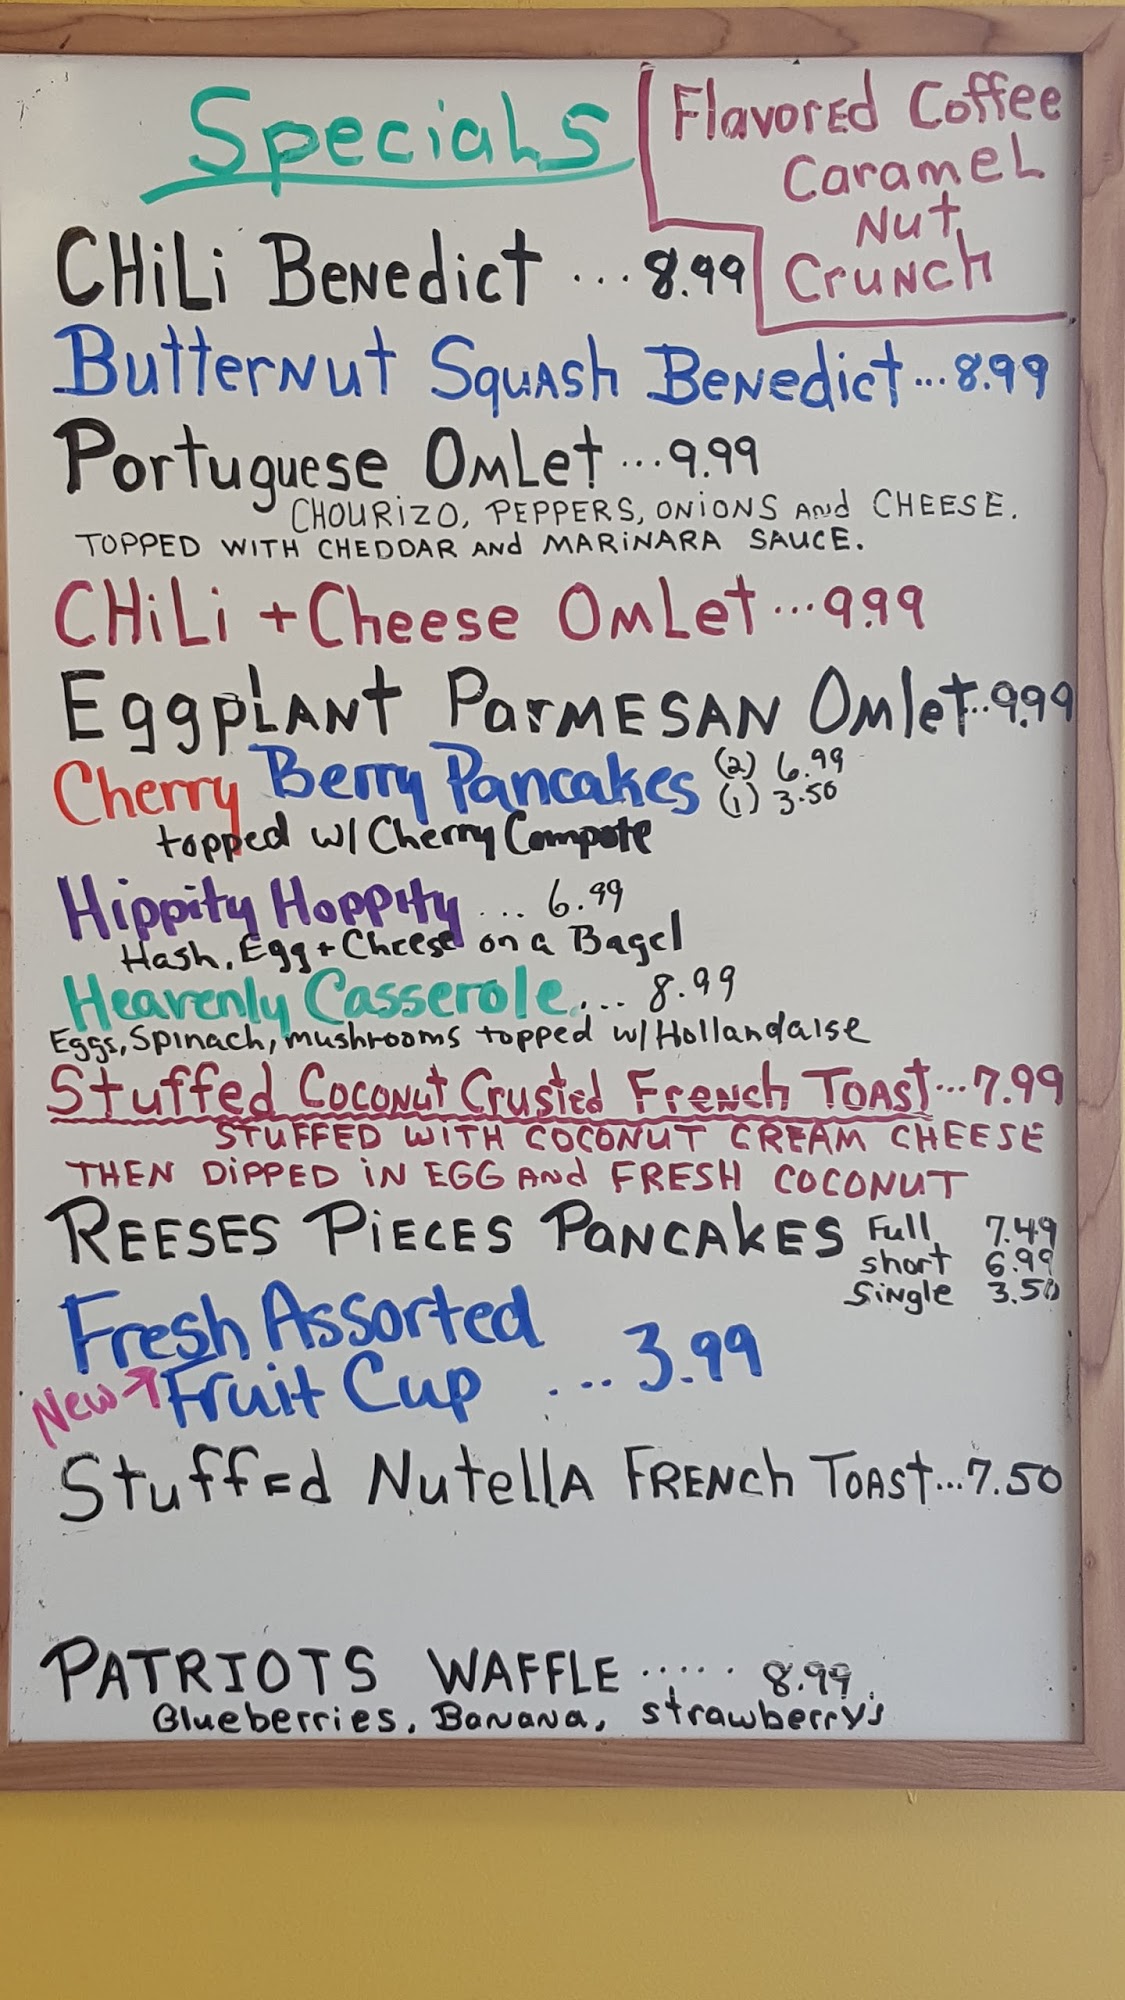 Specials
Flavored Coffee
Caramel
Nut
Crunch
CHiLi Benedict ... 8.99
Butternut Squash Benedict ... 8.99
Portuguese Omlet ... 9.99
CHOURIZO, PEPPERS, ONIONS and CHEESE.
TOPPED WITH CHEDDAR AND MARINARA SAUCE.
CHiLi + Cheese Omlet ... 9.99
Eggplant Parmesan Omlet ... 9.99
Cherry Berry Pancakes (2) 6.99
(1) 3.50
topped w/ Cherry Compote
Hippity Hoppity ... 6.99
Hash, Egg + Cheese on a Bagel
Heavenly Casserole ... 8.99
Eggs, Spinach, mushrooms topped w/ Hollandaise
Stuffed Coconut Crusted French Toast ... 7.99
STUFFED WITH COCONUT CREAM CHEESE
THEN DIPPED IN EGG AND FRESH COCONUT
REESES PIECES PANCAKES Full 7.49
short 6.99
Single 3.50
Fresh Assorted
New → Fruit Cup ... 3.99
Stuffed Nutella French Toast ... 7.50
PATRIOTS WAFFLE ..... 8.99
Blueberries, Banana, strawberrys